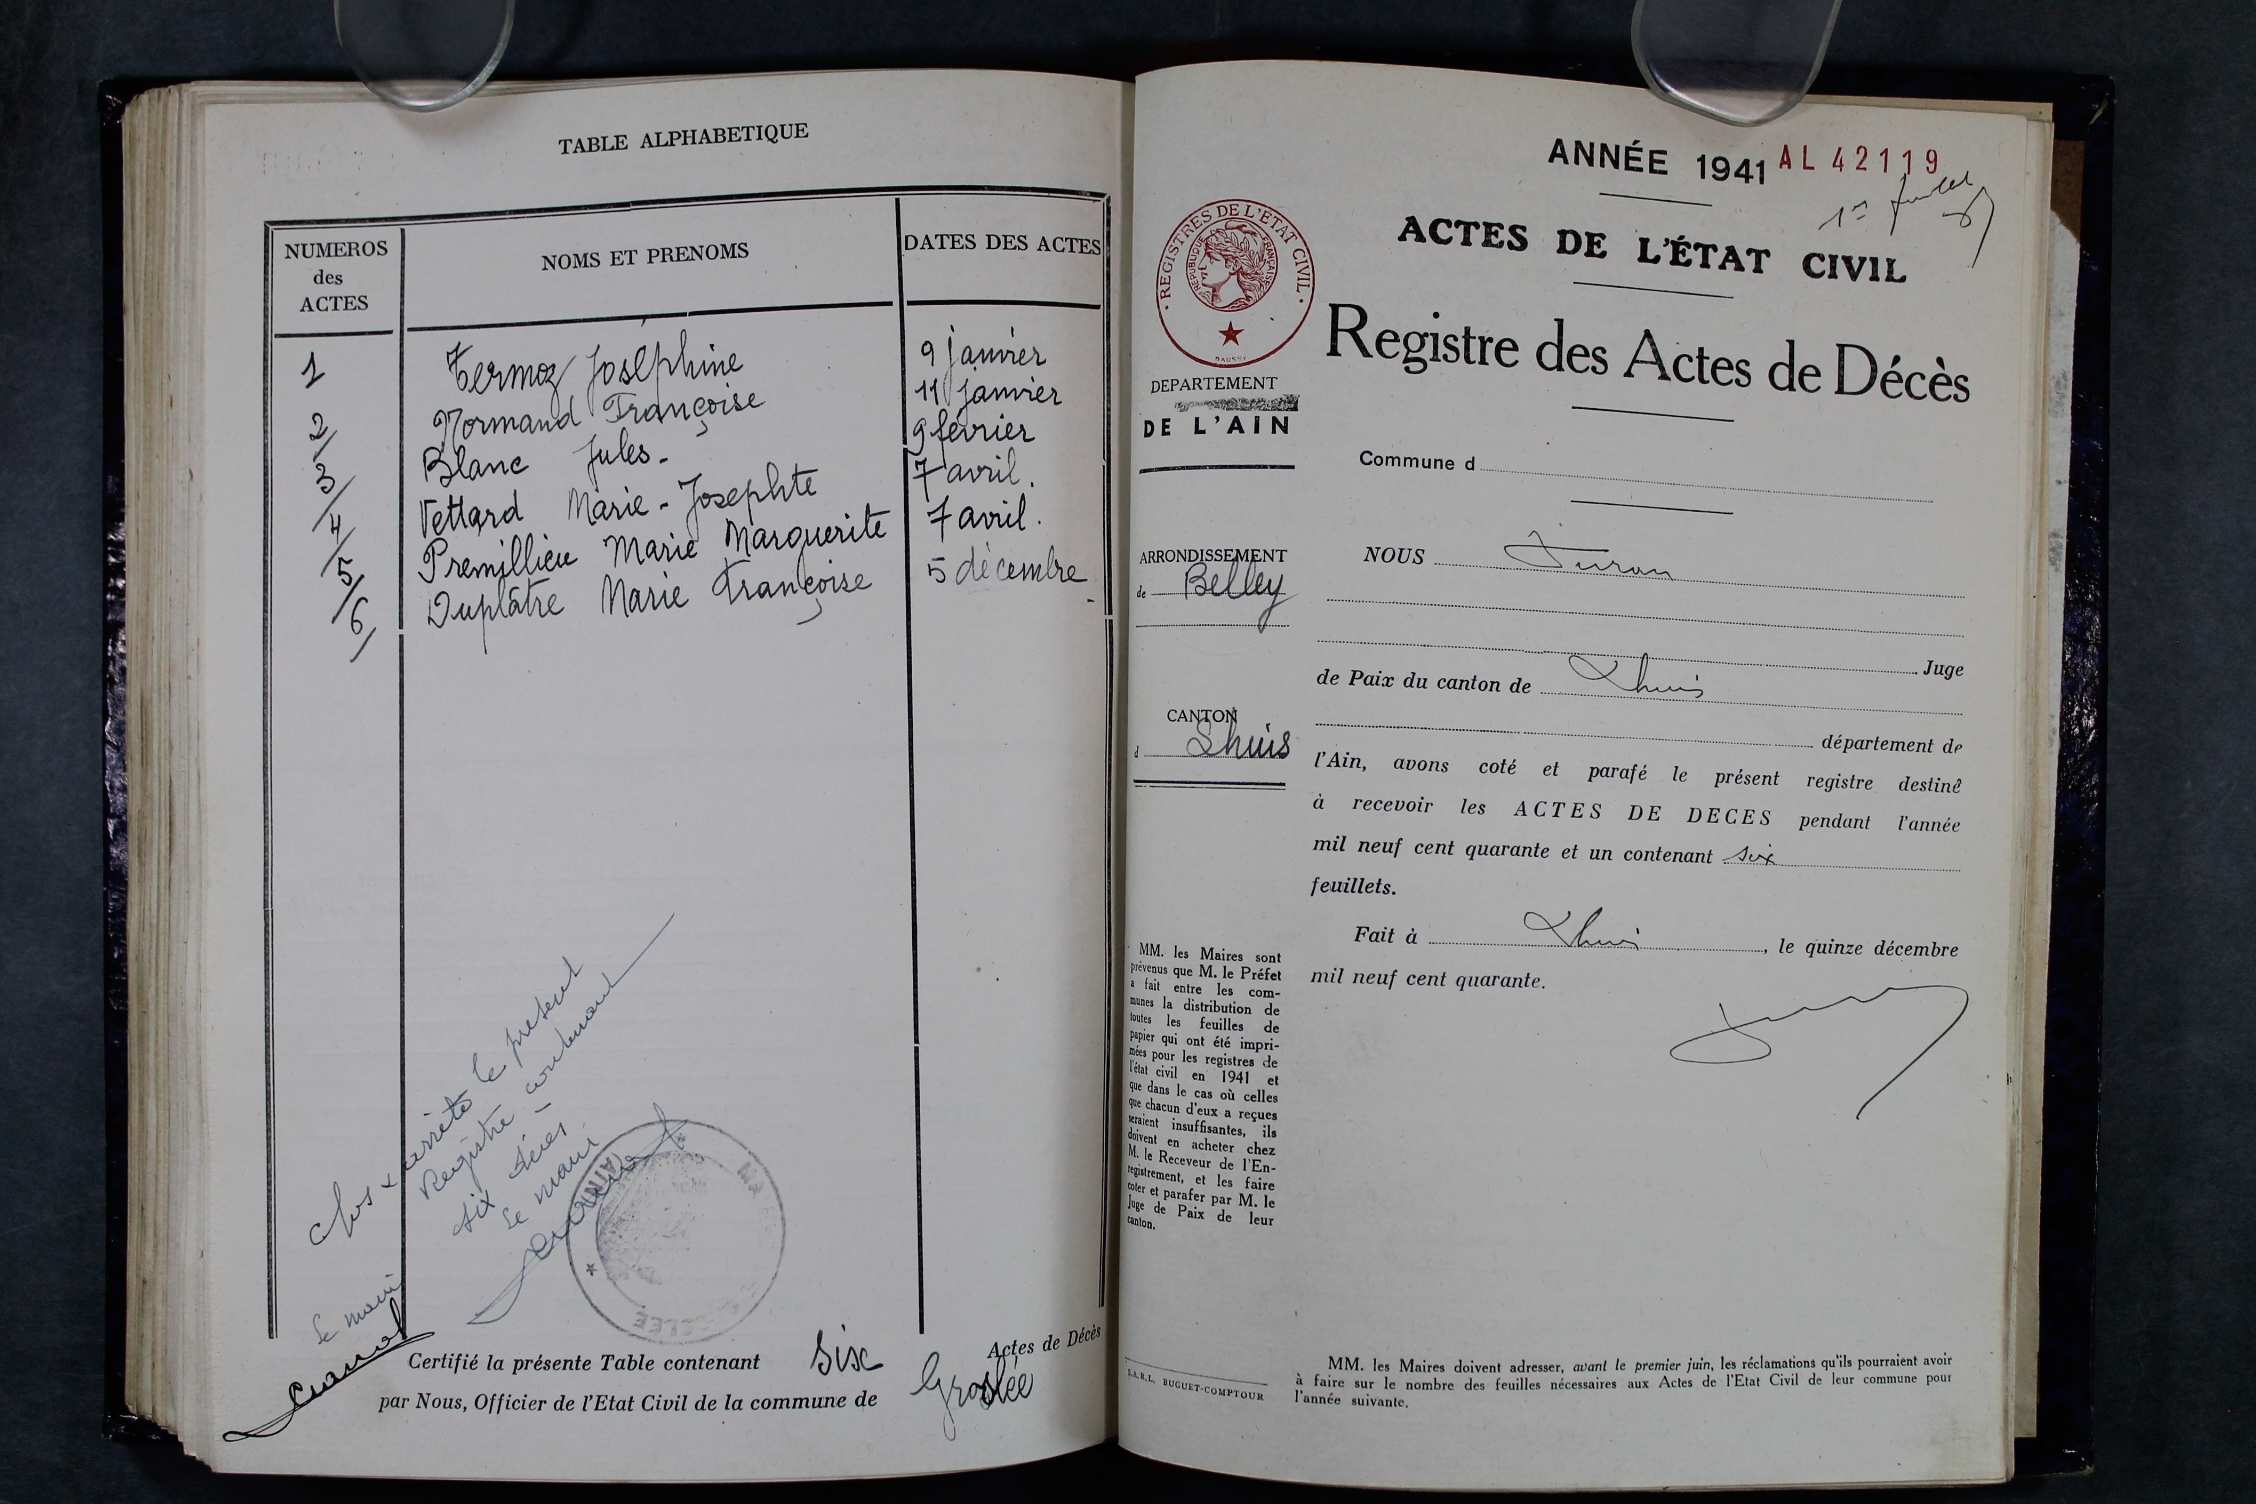 TABLE ALPHABETIQUE
NUMEROS
des
ACTES
NOMS ET PRENOMS
DATES DES ACTES
1 Termoz Joséphine 9 janvier
2 Normand Françoise 11 janvier
3 Blanc Jules - 9 février
4 Vettard Marie - Josephte 7 avril.
5 Premillieu Marie Marguerite 7 avril.
6 Duplâtre Marie Françoise 5 décembre -
Clos & arrêté le présent
Registre contenant
six
Le maire
AIN
Le maire
Certifié la présente Table contenant six Actes de Décès
par Nous, Officier de l'Etat Civil de la commune de Groslée
ANNÉE 1941 AL 42119
1er feuillet
REGISTRES DE L'ETAT CIVIL
REPUBLIQUE FRANÇAISE
ACTES DE L'ÉTAT CIVIL
Registre des Actes de Décès
DEPARTEMENT
DE L'AIN
Commune d
ARRONDISSEMENT
de Belley
CANTON
d Lhuis
NOUS
Juge
de Paix du canton de Lhuis
département de
l'Ain, avons coté et parafé le présent registre destiné
à recevoir les ACTES DE DECES pendant l'année
mil neuf cent quarante et un contenant six
feuillets.
Fait à Lhuis, le quinze décembre
mil neuf cent quarante.
MM. les Maires sont
prévenus que M. le Préfet
a fait entre les com-
munes la distribution de
toutes les feuilles de
papier qui ont été impri-
mées pour les registres de
l'état civil en 1941 et
que dans le cas où celles
que chacun d'eux a reçues
seraient insuffisantes, ils
doivent en acheter chez
M. le Receveur de l'En-
registrement, et les faire
coter et parafer par M. le
Juge de Paix de leur
canton.
S.A.R.L. BUGUET-COMPTOUR
MM. les Maires doivent adresser, avant le premier juin, les réclamations qu'ils pourraient avoir
à faire sur le nombre des feuilles nécessaires aux Actes de l'Etat Civil de leur commune pour
l'année suivante.